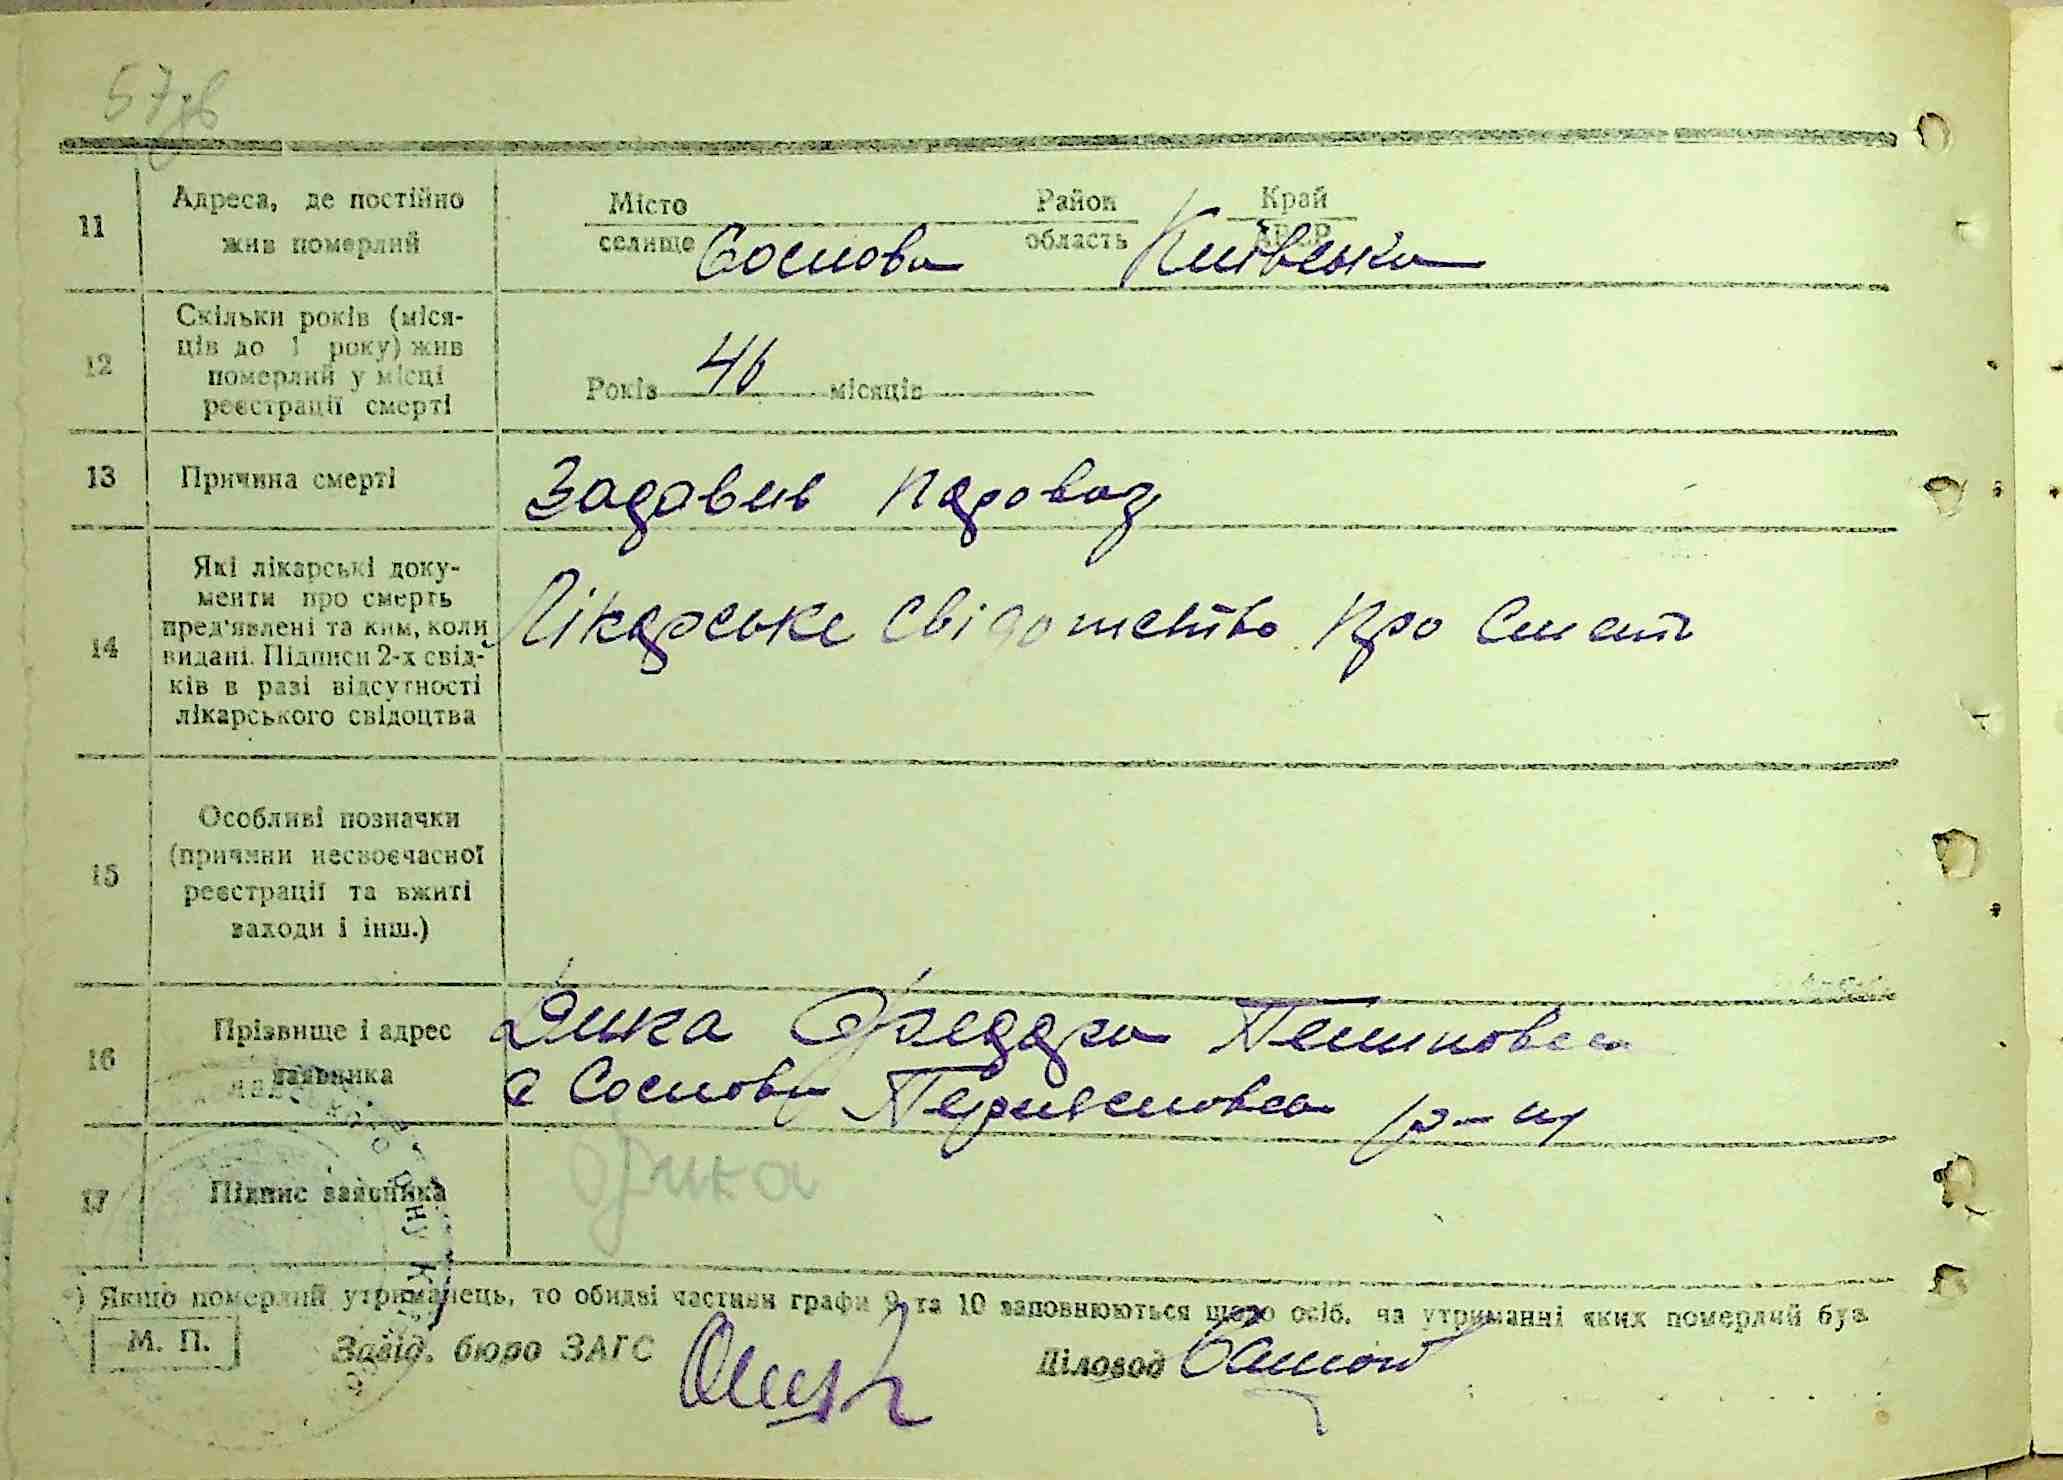 57зв
11 Адреса, де постійно жив померлий
Місто селище Соснова Район область Київська Край АРСР
12 Скільки років (міся-
ців до 1 року) жив
померлий у місці
реєстрації смерті
Років 46 місяців
13 Причина смерті Задавив паровоз
14 Які лікарські доку-
менти про смерть
пред'явлені та ким, коли
видані. Підписи 2-х свід-
ків в разі відсутності
лікарського свідоцтва
Лікарське свідотство про сметь
15 Особливі позначки
(причини несвоєчасної
реєстрації та вжиті
заходи і інш.)
16 Прізвище і адрес
заявника
Дика
с Соснови р-ну
17 Підпис заявника Дика
*) Якщо померлий утриманець, то обидві частини графи 9 та 10 заповнюються щодо осіб, на утриманні яких померлий був.
М. П. Завід. бюро ЗАГС Діловод